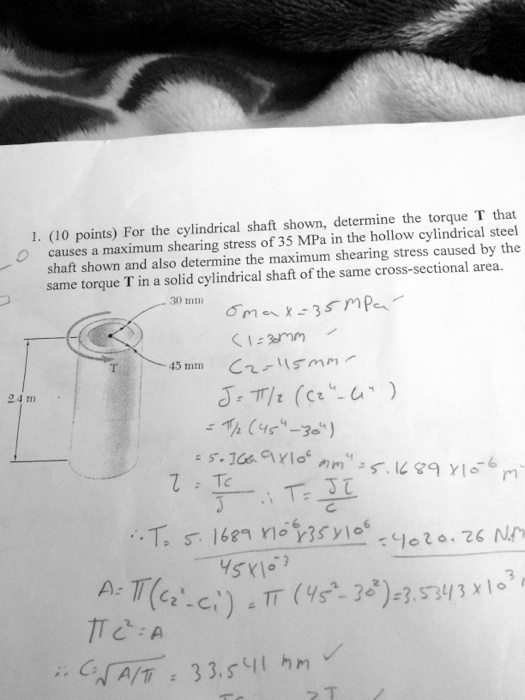 1. (10 points) For the cylindrical shaft shown, determine the torque T that
causes a maximum shearing stress of 35 MPa in the hollow cylindrical steel
shaft shown and also determine the maximum shearing stress caused by the
same torque T in a solid cylindrical shaft of the same cross-sectional area.
30 mm
σmax = 35 MPa
C1 = 30mm
45 mm
C2 = 45mm
T
2.4 m
J = π/2 (C2⁴ - C1⁴)
= π/2 (45⁴ - 30⁴)
= 5.1689 x10⁶ mm⁴ = 5.1689 x10⁻⁶ m
τ = Tc/J ∴ T = Jτ/c
∴ T = 5.1689 x10⁻⁶ x 35 x10⁶ / 45x10⁻³ = 4020.26 N.m
A = π(C2² - C1²) = π (45² - 30²) = 3.5343 x10³
πC² = A
∴ C = √A/π = 33.541 mm ✓
2T